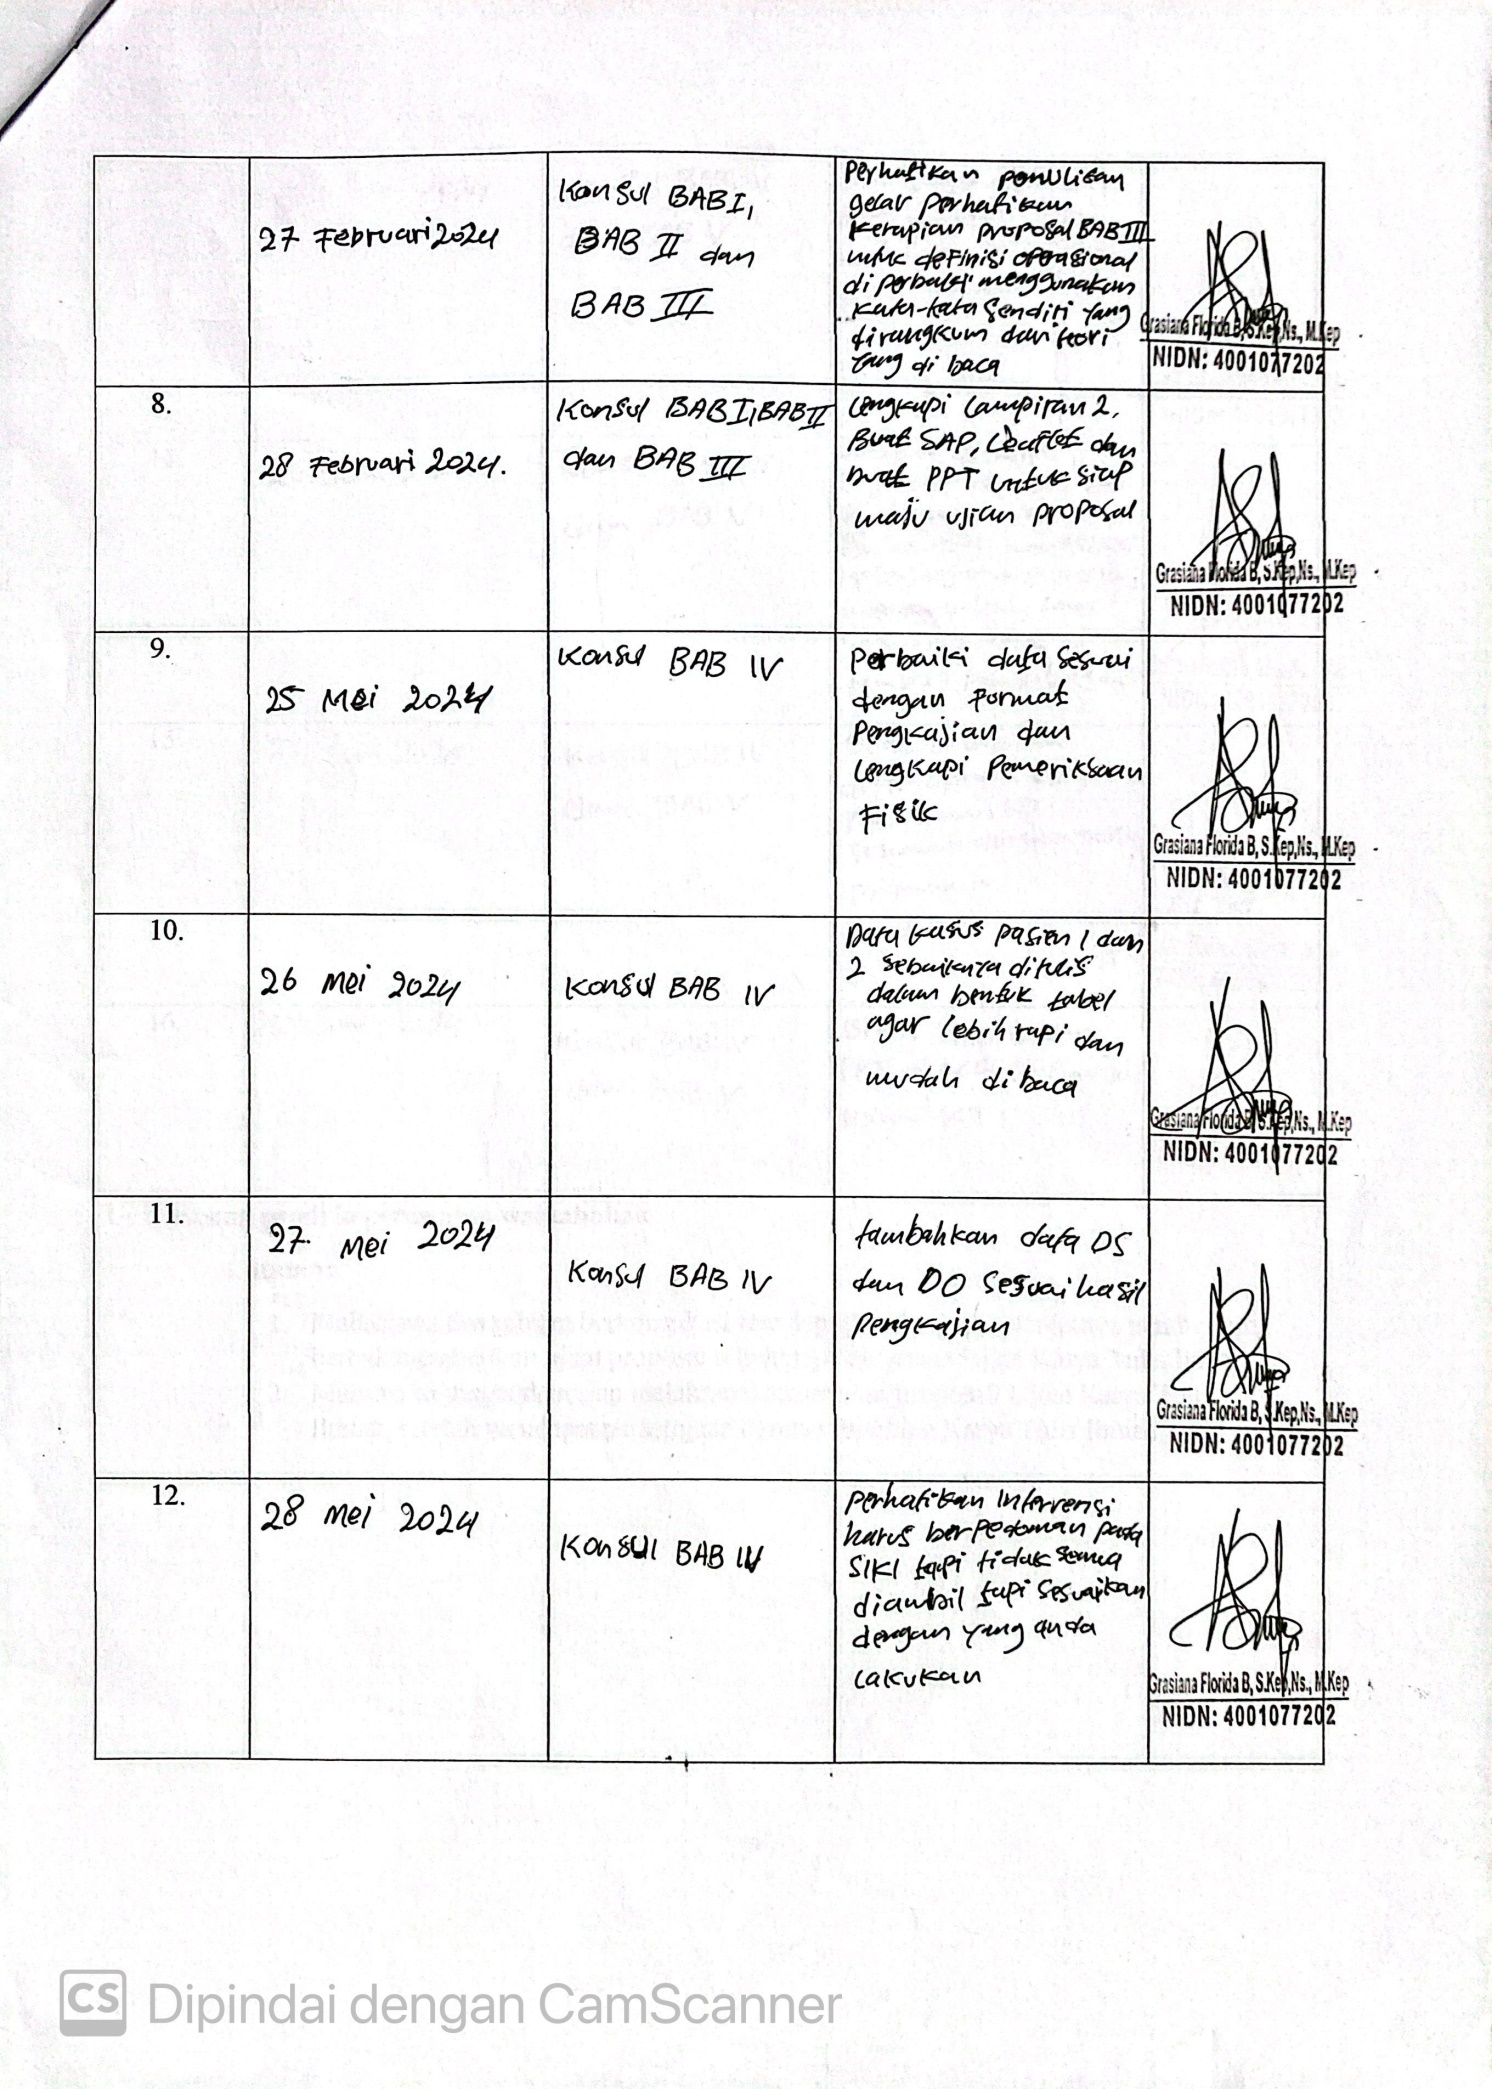 27 Februari 2024
Konsul BAB I,
BAB II dan
BAB III
Perhatikan penulisan
gelar perhatikan
kerapian proposal BAB III
untuk definisi operasional
di perbaiki menggunakan
kata-kata sendiri yang
dirangkum dari teori
yang di baca
Grasiana Florida B, S.Kep,Ns., M.Kep
NIDN: 4001077202
8.
28 Februari 2024.
Konsul BAB I, BAB II
dan BAB III
Lengkapi Lampiran 2,
Buat SAP, Leaflet dan
buat PPT untuk siap
maju ujian proposal
Grasiana Florida B, S.Kep,Ns., M.Kep
NIDN: 4001077202
9.
25 Mei 2024
Konsul BAB IV
Perbaiki data sesuai
dengan Format
Pengkajian dan
Lengkapi Pemeriksaan
Fisik
Grasiana Florida B, S.Kep,Ns., M.Kep
NIDN: 4001077202
10.
26 Mei 2024
Konsul BAB IV
Data kasus pasien 1 dan
2 sebaiknya ditulis
dalam bentuk tabel
agar lebih rapi dan
mudah di baca
Grasiana Florida B, S.Kep,Ns., M.Kep
NIDN: 4001077202
11.
27 Mei 2024
Konsul BAB IV
tambahkan data DS
dan DO sesuai hasil
Pengkajian
Grasiana Florida B, S.Kep,Ns., M.Kep
NIDN: 4001077202
12.
28 Mei 2024
Konsul BAB IV
perhatikan Intervensi
harus berpedoman pada
SIKI tapi tidak semua
diambil tapi sesuaikan
dengan yang anda
lakukan
Grasiana Florida B, S.Kep,Ns., M.Kep
NIDN: 4001077202
CS Dipindai dengan CamScanner